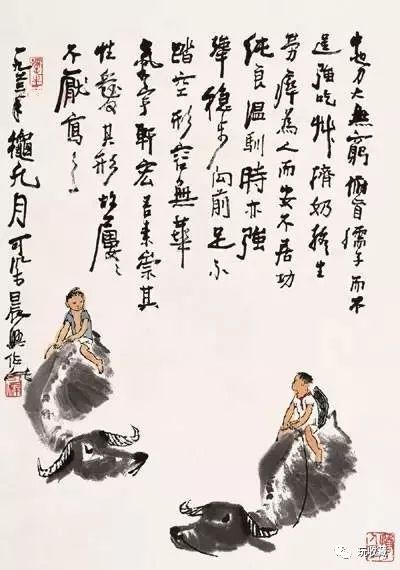 牛也力大無窮俯首孺子而不
逞強吃艸擠奶終生
勞瘁為人而安不居功
純良温馴時亦強
犟穩步向前足不
踏空形容無華
氣宇軒宏吾素崇其
性愛其形故屢々
不厭寫之
一九六三年龝九月可染晨興作
玩收藏